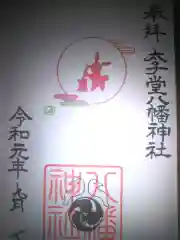 奉拝 太子堂八幡神社
八幡
神社
令和元年